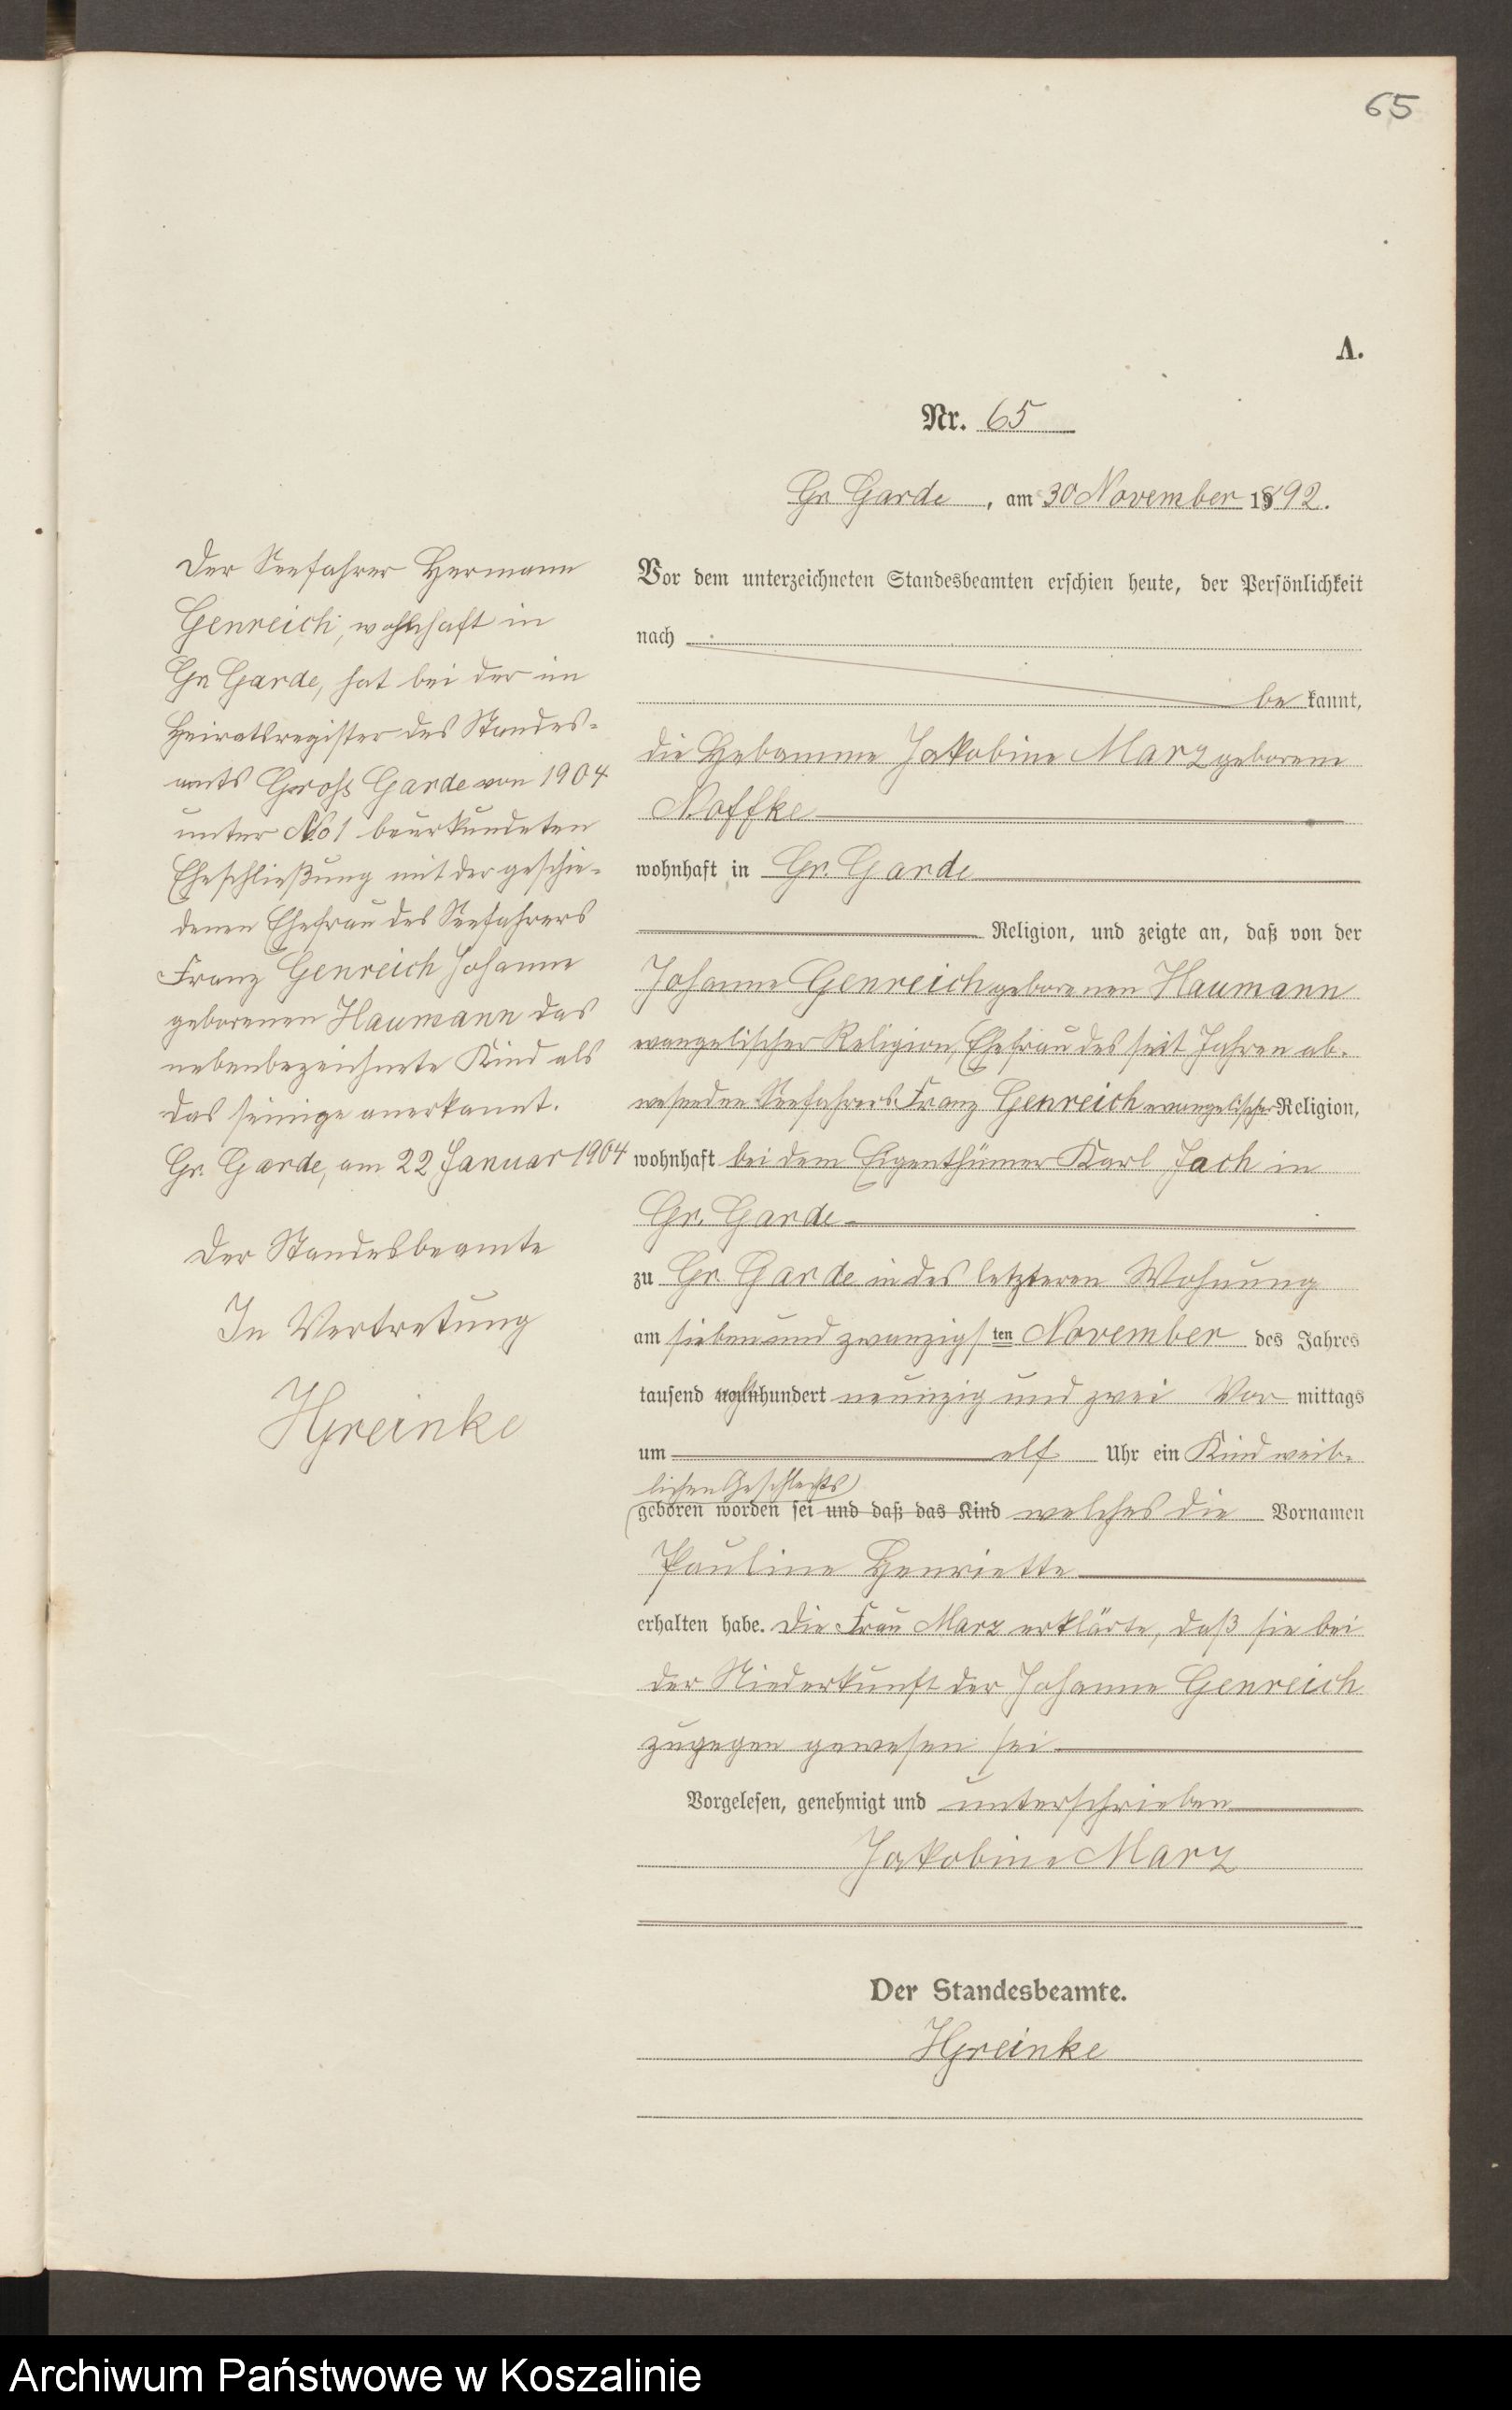 65
A.
Nr. 65
Gr. Garde, am 30 November 1892.
Vor dem unterzeichneten Standesbeamten erschien heute, der Persönlichkeit
nach
be kannt,
die Hebamme Jakobine Marz geborene
Noffke
wohnhaft in Gr. Garde
Religion, und zeigte an, daß von der
Johanne Genreich geborenen Haumann
evangelischer Religion, Ehefrau des seit Jahren ab-
wesenden Seefahrers Franz Genreich evangelischer Religion,
wohnhaft bei dem Eigenthümer Karl Jach in
Gr. Garde
zu Gr. Garde in des letzteren Wohnung
am sieben und zwanzigsten November des Jahres
tausend achthundert neunzig und zwei Vor mittags
um elf Uhr ein Kind weib-
lichen Geschlechts
geboren worden sei und daß das Kind welches die Vornamen
Pauline Henriette
erhalten habe. Die Frau Marz erklärte, daß sie bei
der Niederkunft der Johanne Genreich
zugegen gewesen sei
Vorgelesen, genehmigt und unterschrieben
Jakobine Marz
Der Standesbeamte.
HGreinke
Der Seefahrer Hermann
Genreich, wohnhaft in
Gr. Garde, hat bei der im
Heiratsregister des Standes-
amts Gross Garde von 1904
unter No 1 beurkundeten
Eheschließung mit der geschie-
denen Ehefrau des Seefahrers
Franz Genreich Johanne
geborenen Haumann das
nebenbezeichnete Kind als
das seinige anerkannt.
Gr. Garde, am 22 Januar 1904
Der Standesbeamte
In Vertretung
HGreinke
Archiwum Państwowe w Koszalinie